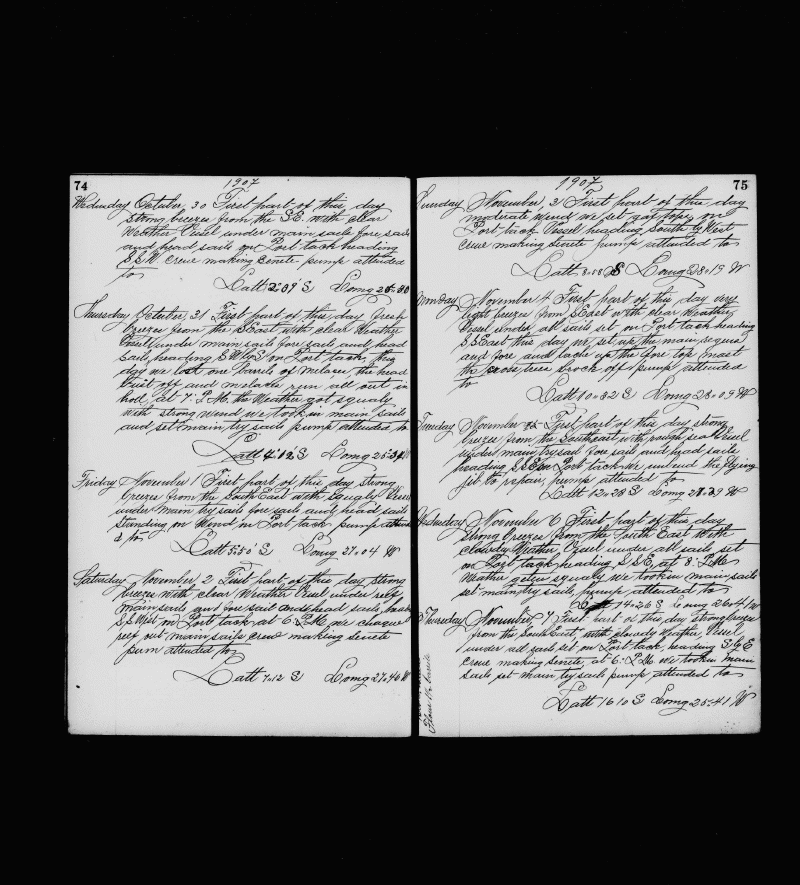 74
1907
Wednesday October, 30 First part of this day
strong breeze from the S.E. with clear
Weather Vessel under main sails fore sails
and head sails on Port tack heading
S.S.W. crew making senete pump attended
to
Latt 2:09' S Long 25=30
Thursday October, 31 First part of this day fresh
breeze from the SEast with clear Weather
Vessel under main sails fore sails and head
sails, heading SWbyS on Port tack, this
day we lost one barrels of melases the head
bust off and melases run all out in
hold, at 7: P.M. the Weather got squaly
with strong wind we took in main sails
and set main try sails pump attended to
Latt 4:12 S Long 25:34 W
Friday November 1 First part of this day strong
breeze from the South East with squaly Vessel
under main try sails fore sails and head sails
standing on Wind on Port tack pump attend
d to
Latt 5:50' S Long 27:04 W
Saturday November, 2 First part of this day strong
breeze with clear Weather Vessel under reef
mainsails and fore sail and head sails,
S.S.West on Port tack at 6: P.M. we
reef out main sails crew making senete
pum attended to,
Latt 7:12 S Long 27:46 W
75
1907
Sunday November, 3 First part of this day
moderate wind we set gaf topss on
Port tack Vessel heading South by West
crew making senete pump attended to
Latt 8:58 S Long 28:19 W
Monday November 4 First part of this day very
light breeze from SEast with clear Weather
Vessel under all sails set on Port tack heading
S.SEast this day we set up the main
and fore and tacke up the fore top mast
the cross tree brock off pump attended
to
Latt 10=32 S Long 28=09 W
Tuesday November 5 First part of this day strong
breeze from the Southeast with rough sea Vessel
under main try sail fore sails and head sails
heading S.S.E on Port tack we unbend the flying
jib to repair, pump attended to
Latt 12=28 S Long 27.39 W
Wednesday November 6 First part of this day
strong breeze from the South East With
cloudy Weather, Vessel under all sails set
on Port tack heading S.S.E, at 8: P.M.
Weather squaly we took in main sails
set main try sails, pump attended to
Latt 14=26 S Long 26:41 W
Thursday November, 7 First part of this day strong breeze
from the South East, with cloudy Weather, Vessel
under all sails set on Port tack, heading SbyE
crew making senete, at 6: P.M. we took in main
sails set main try sails pump attended to
Latt 16 10 S Long 25:41 W